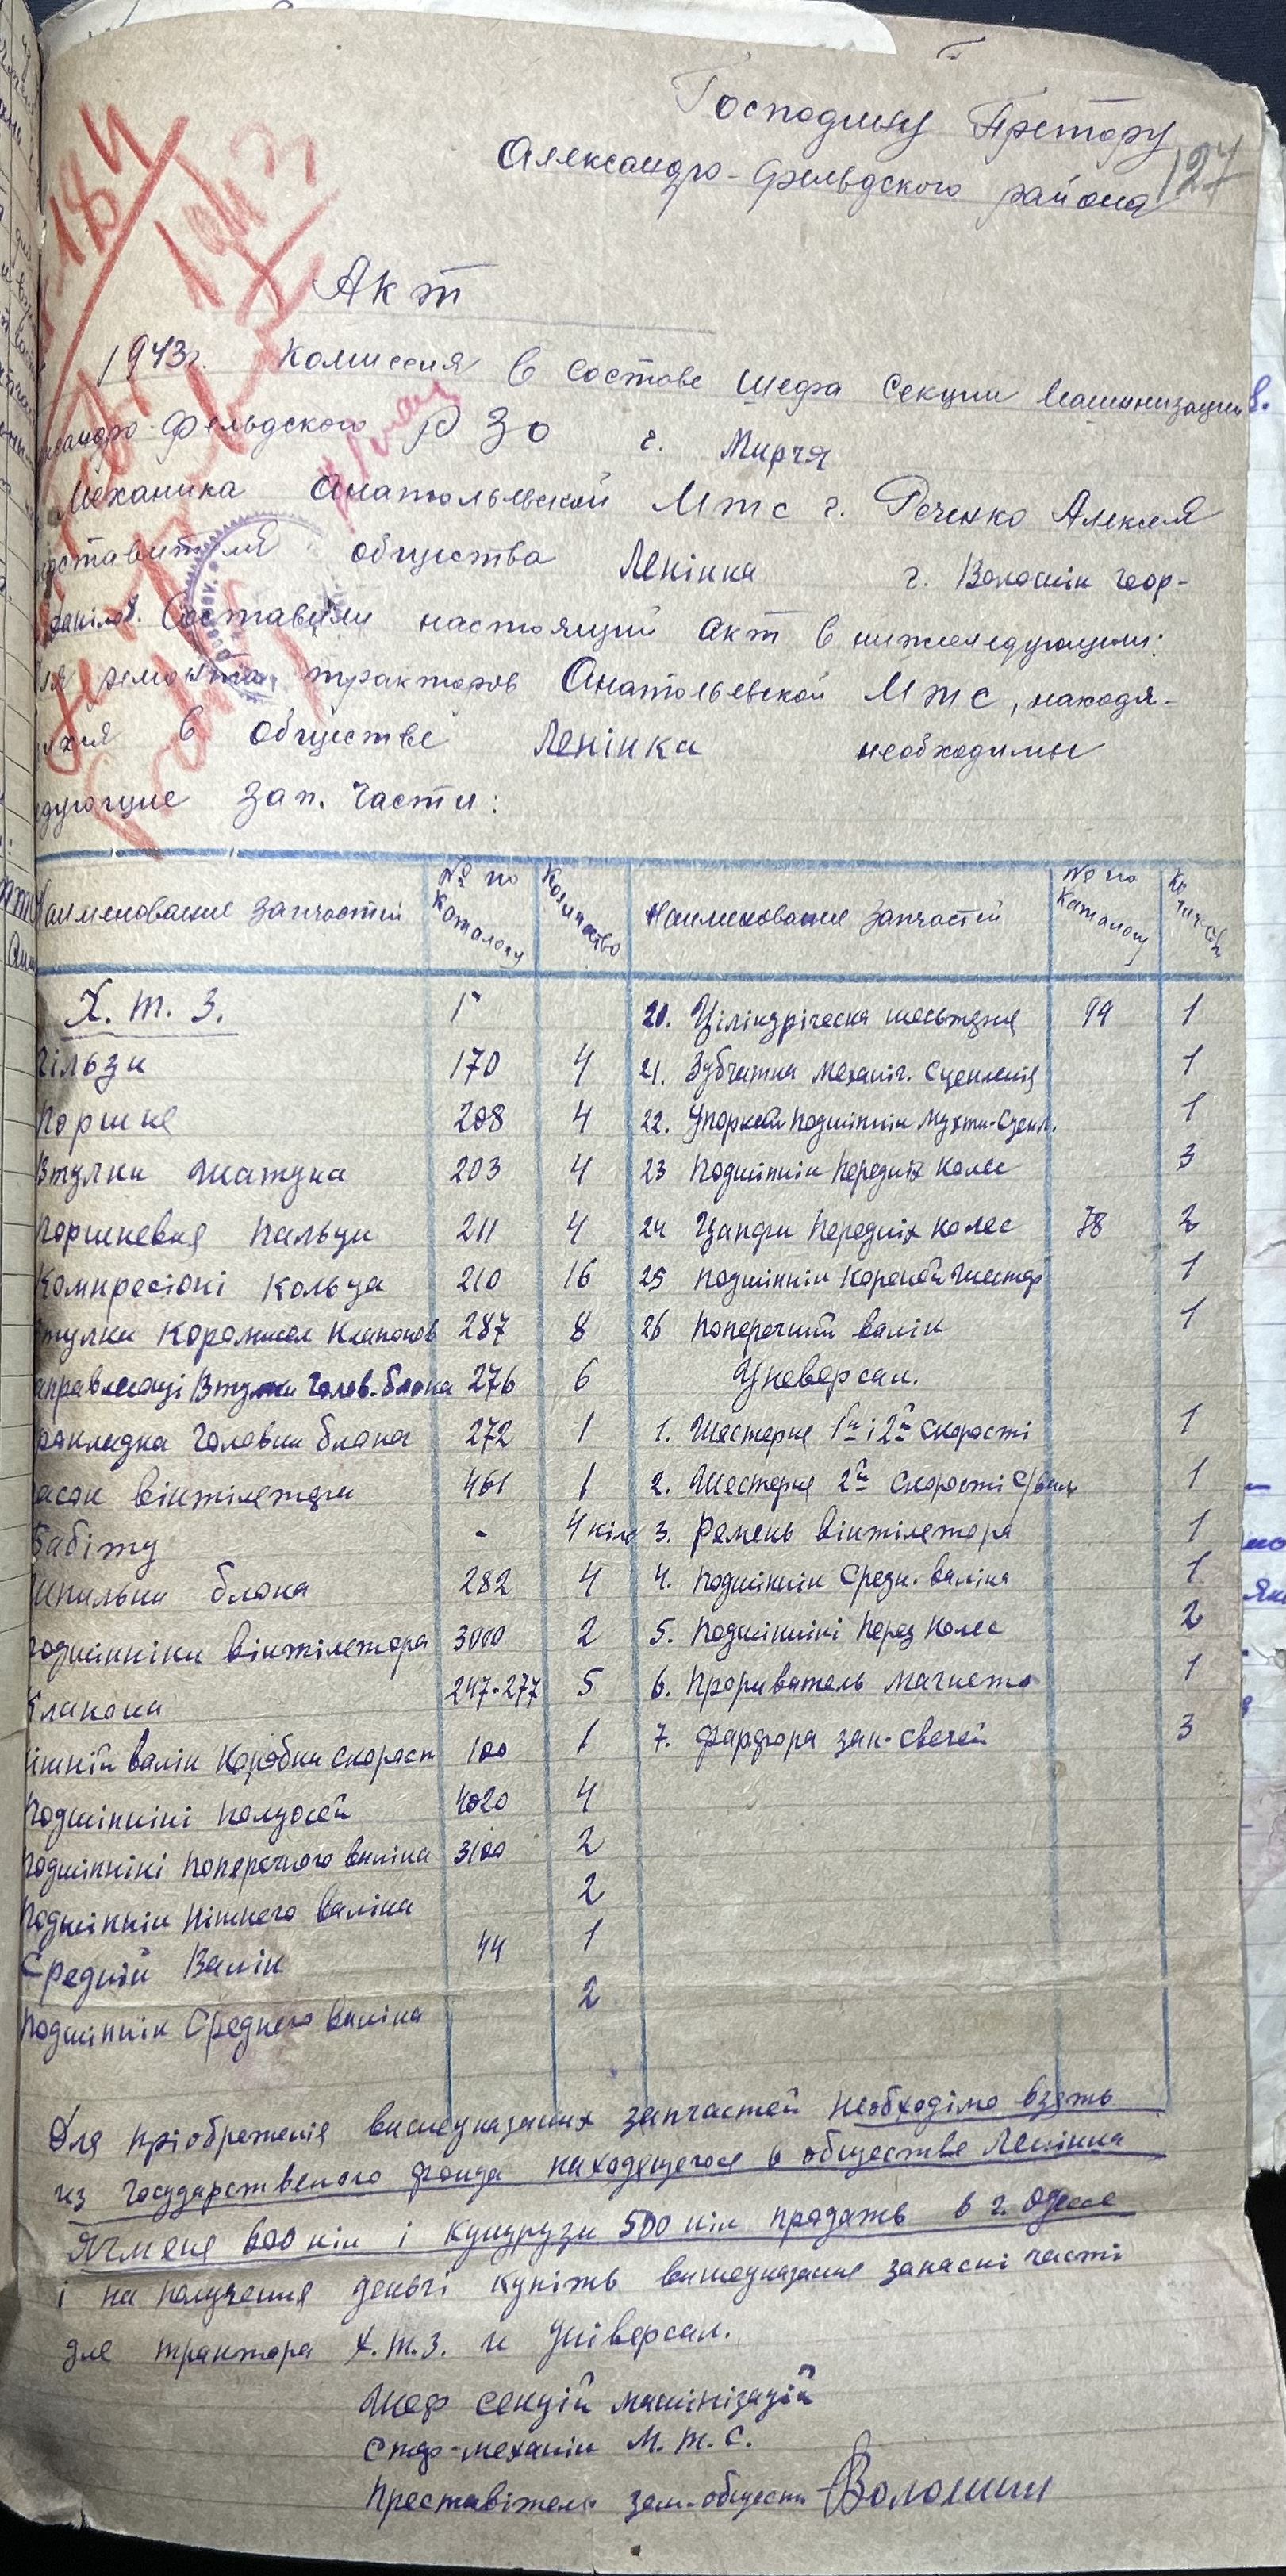 Господину Претору
Александро-Фельдского района
127
Акт
1943г. Комиссия в составе шефа секции машинизации
сандро-Фельдского РЗО г. Мирчя
Механика Анатольевской Мтс г. Реченко Алексея
дставителя общества Ленінка г. Волошін Геор-
данілов. Составили настоящий акт в нижеследующем:
ля ремонта тракторов Анатольевской Мтс, находя-
ихся в обществе Ленінка необходимы
едующие зап. части:
Наименование запчастей № по каталогу Количество Наименование запчастей № по каталогу
Х. т. З. 20. Ціліндріческа шестерня 99 1
гільзи 170 4 21. Зубчатка механіч. сцепленія 1
Поршне 208 4 22. Упорний подшіпнік Муфти-Сцепл. 1
Втулки шатуна 203 4 23 Подшіпнік передніх колес 3
Поршневия пальци 211 4 24 Цапфи передніх колес 78 2
Компресіоні кольца 210 16 25 Подшіпнік 1
тулки коромисел клапонов 287 8 26 Поперечний валік 1
аправлющі втулки голов. блока 276 6 Уневерсал.
рокладка головки блока 272 1 1. Шестерне 1й і 2й скорості 1
асок вінтілятора 461 1 2. Шестерне 2й скорості 1
Бабіту - 4 кіло 3. Ремень вінтілятора 1
шпильки блока 282 4 4. Подшіпнік средн. валіка 1
подшипники вінтілятора 3000 2 5. Подшіпнікі перед колес 2
Клапона 247-277 5 6. Прориватель магнето 1
іжній валік коробки скорост 100 1 7. Фарфора зап. свечей 3
Подшіпнікі полуосей 4020 4
Подшіпнікі поперечного валіка 3100 2
Подшіпнік ніжнего валіка 2
Средній Валік 44 1
Подшіпнік Среднего валіка 2
Для пріобретенія вишеуказаних запчастей необходімо взять
из государственого фонда находящегося в обществе Ленінка
Ячменя 600 кіл і кукурузи 500 кіл продать в г. Одесе
і на получення деньгі купіть вишеуказание запасні часті
для трактора Х.т.З. и Універсал.
Шеф секцій машінізацій
Ст. механік М.т.С.
Преставітель зем. общест Волошин